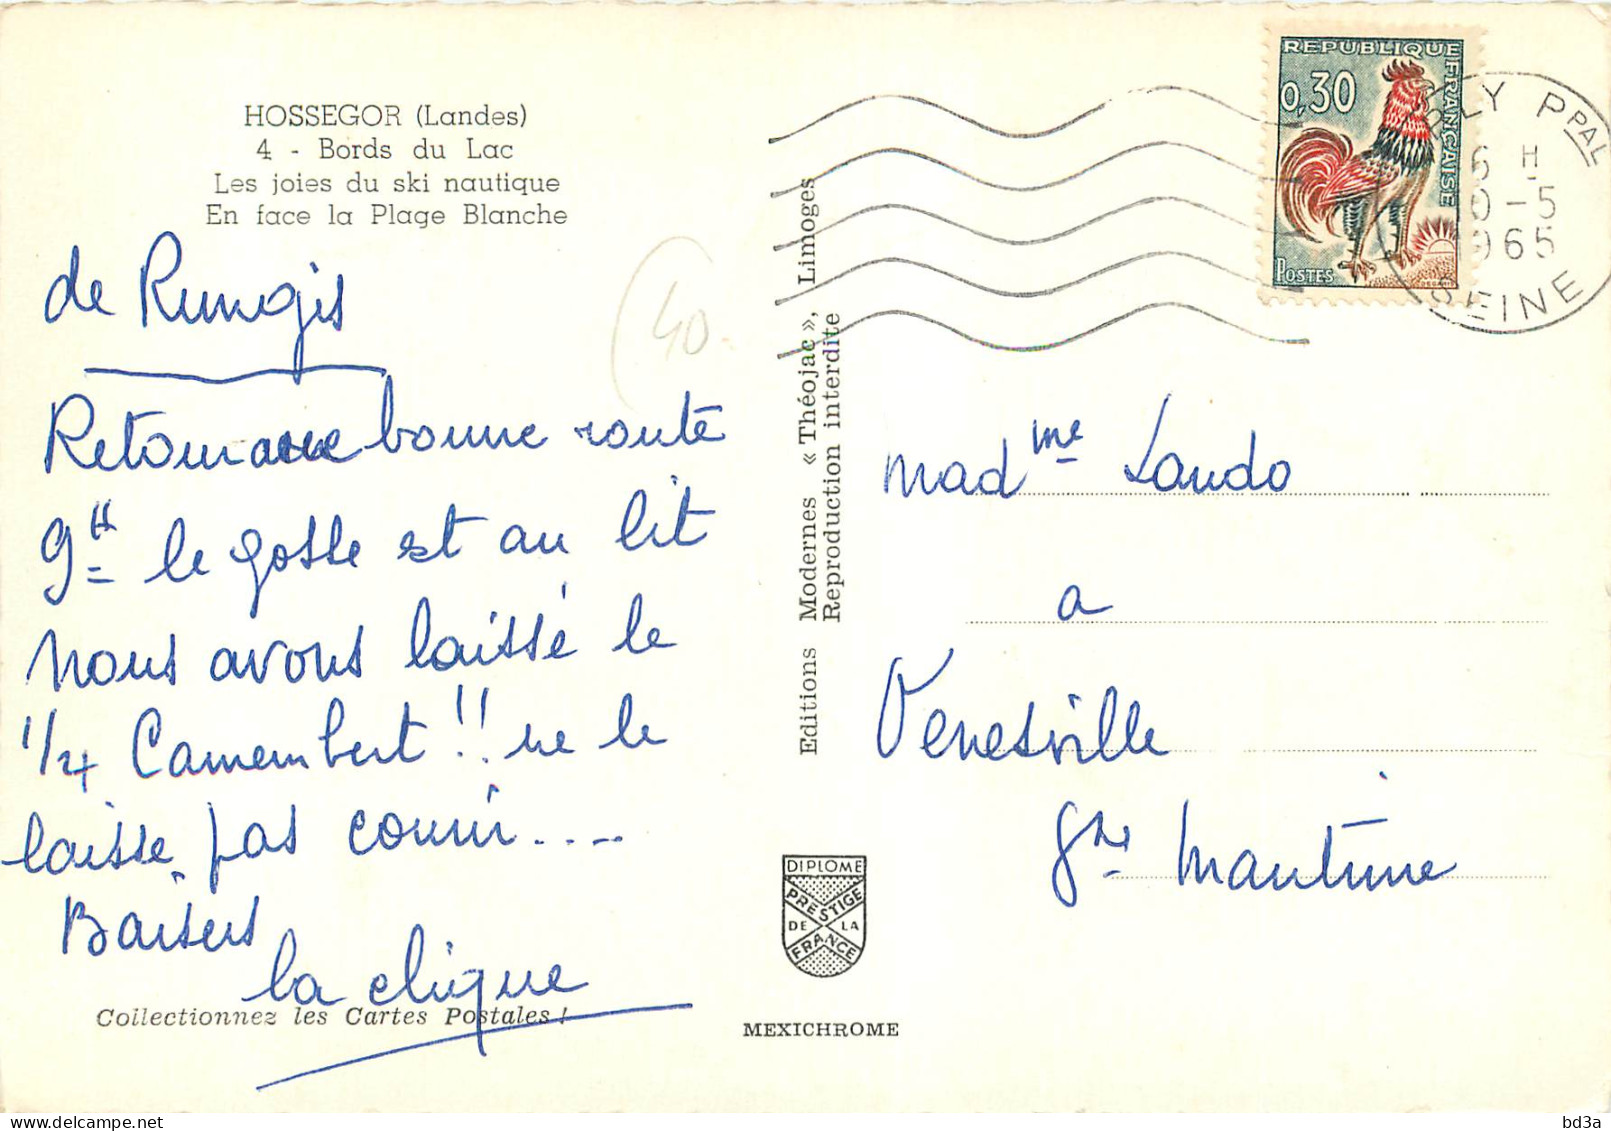 HOSSEGOR (Landes)
4 - Bords du Lac
Les joies du ski nautique
En face la Plage Blanche
de Rungis
Retour avec bonne route
9H le gosse est au lit
nous avons laissé le
1/4 Camembert !! ne le
laisse pas courir ....
Baisers
la clique
Collectionnez les Cartes Postales !
40
Editions Modernes « Théojac », Limoges
Reproduction interdite
DIPLOME
PRESTIGE
DE LA
FRANCE
MEXICHROME
REPUBLIQUE FRANÇAISE
0,30
POSTES
RLY PPAL
6 H
0-5
965
SEINE
Madme Laudo
a
Venesville
Sne Maritime
bd3a